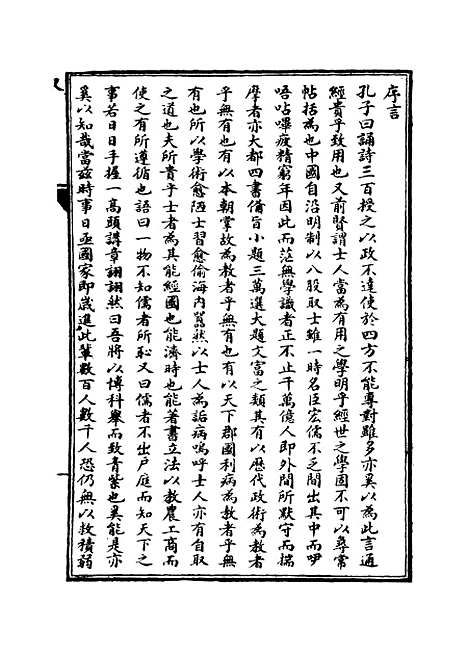 序言
孔子曰誦詩三百授之以政不達使於四方不能專對雖多亦奚以為此言通
經貴乎致用也又前賢謂士人當為有用之學明乎經世之學固不可以尋常
帖括為也中國自沿明制以八股取士雖一時名臣宏儒不乏間出其中而咿
唔呫嗶疲精窮年因此而茫無學識者正不止千萬億人即外間所默守而揣
摩者亦大都四書備旨小題三萬選大題文富之類其有以歷代政術為教者
乎無有也有以本朝掌故為教者乎無有也有以天下郡國利病為教者乎無
有也所以學術愈陋士習愈偷海內囂然以士人為詬病嗚呼士人亦有自取
之道也夫所貴乎士者為其能經國也能濟時也能著書立法以教農工商而
使之有所遵循也語曰一物不知儒者所恥又曰儒者不出戶庭而知天下之
事若日日手握一高頭講章詡詡然曰吾將以博科舉而致青紫也奚能是亦
奚以知哉當茲時事日亟國家即歲進此輩數百人數千人恐仍無以救積弱